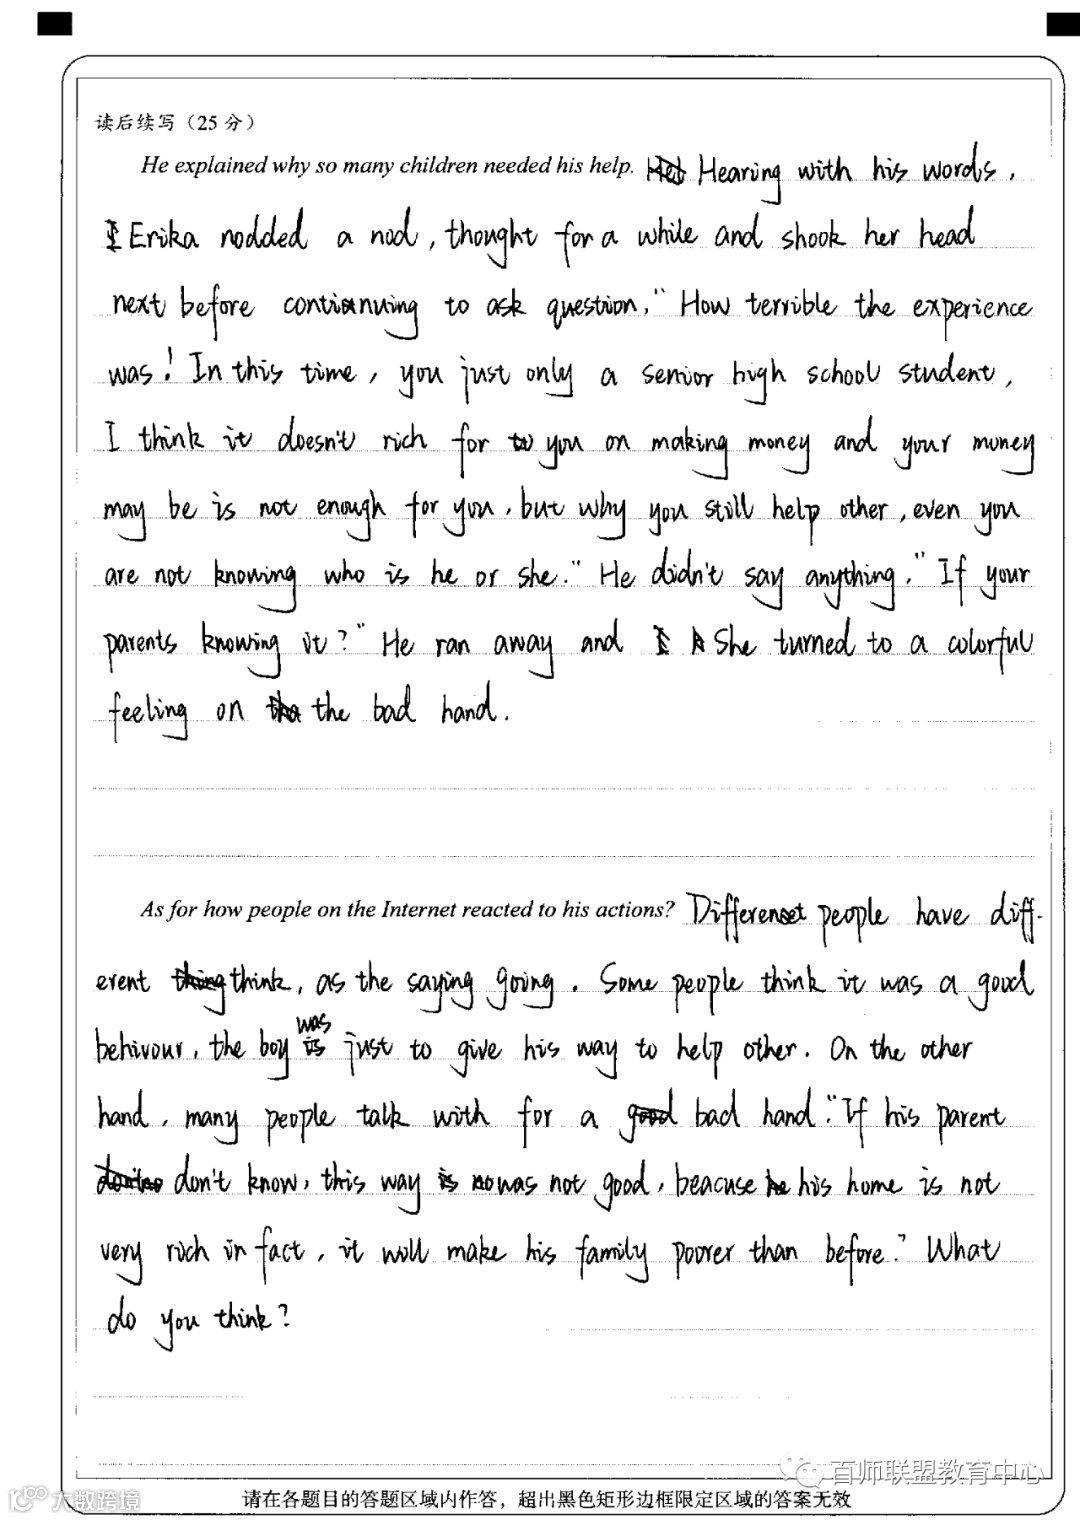 读后续写（25 分）
He explained why so many children needed his help. Hearing with his words,
Erika nodded a nod, thought for a while and shook her head
next before continuing to ask question, "How terrible the experience
was! In this time, you just only a senior high school student,
I think it doesn't rich for you on making money and your muney
may be is not enough for you, but why you still help other, even you
are not knowing who is he or she." He didn't say anything. "If your
parents knowing it?" He ran away and She turned to a colorful
feeling on the bad hand.
As for how people on the Internet reacted to his actions? Different people have diff-
erent think, as the saying going. Some people think it was a good
behivour, the boy was just to give his way to help other. On the other
hand, many people talk with for a bad hand. "If his parent
don't know, this way was not good, beacuse his home is not
very rich in fact, it will make his family poorer than before." What
do you think?
百师联盟教育中心
大数跨境
请在各题目的答题区域内作答，超出黑色矩形边框限定区域的答案无效